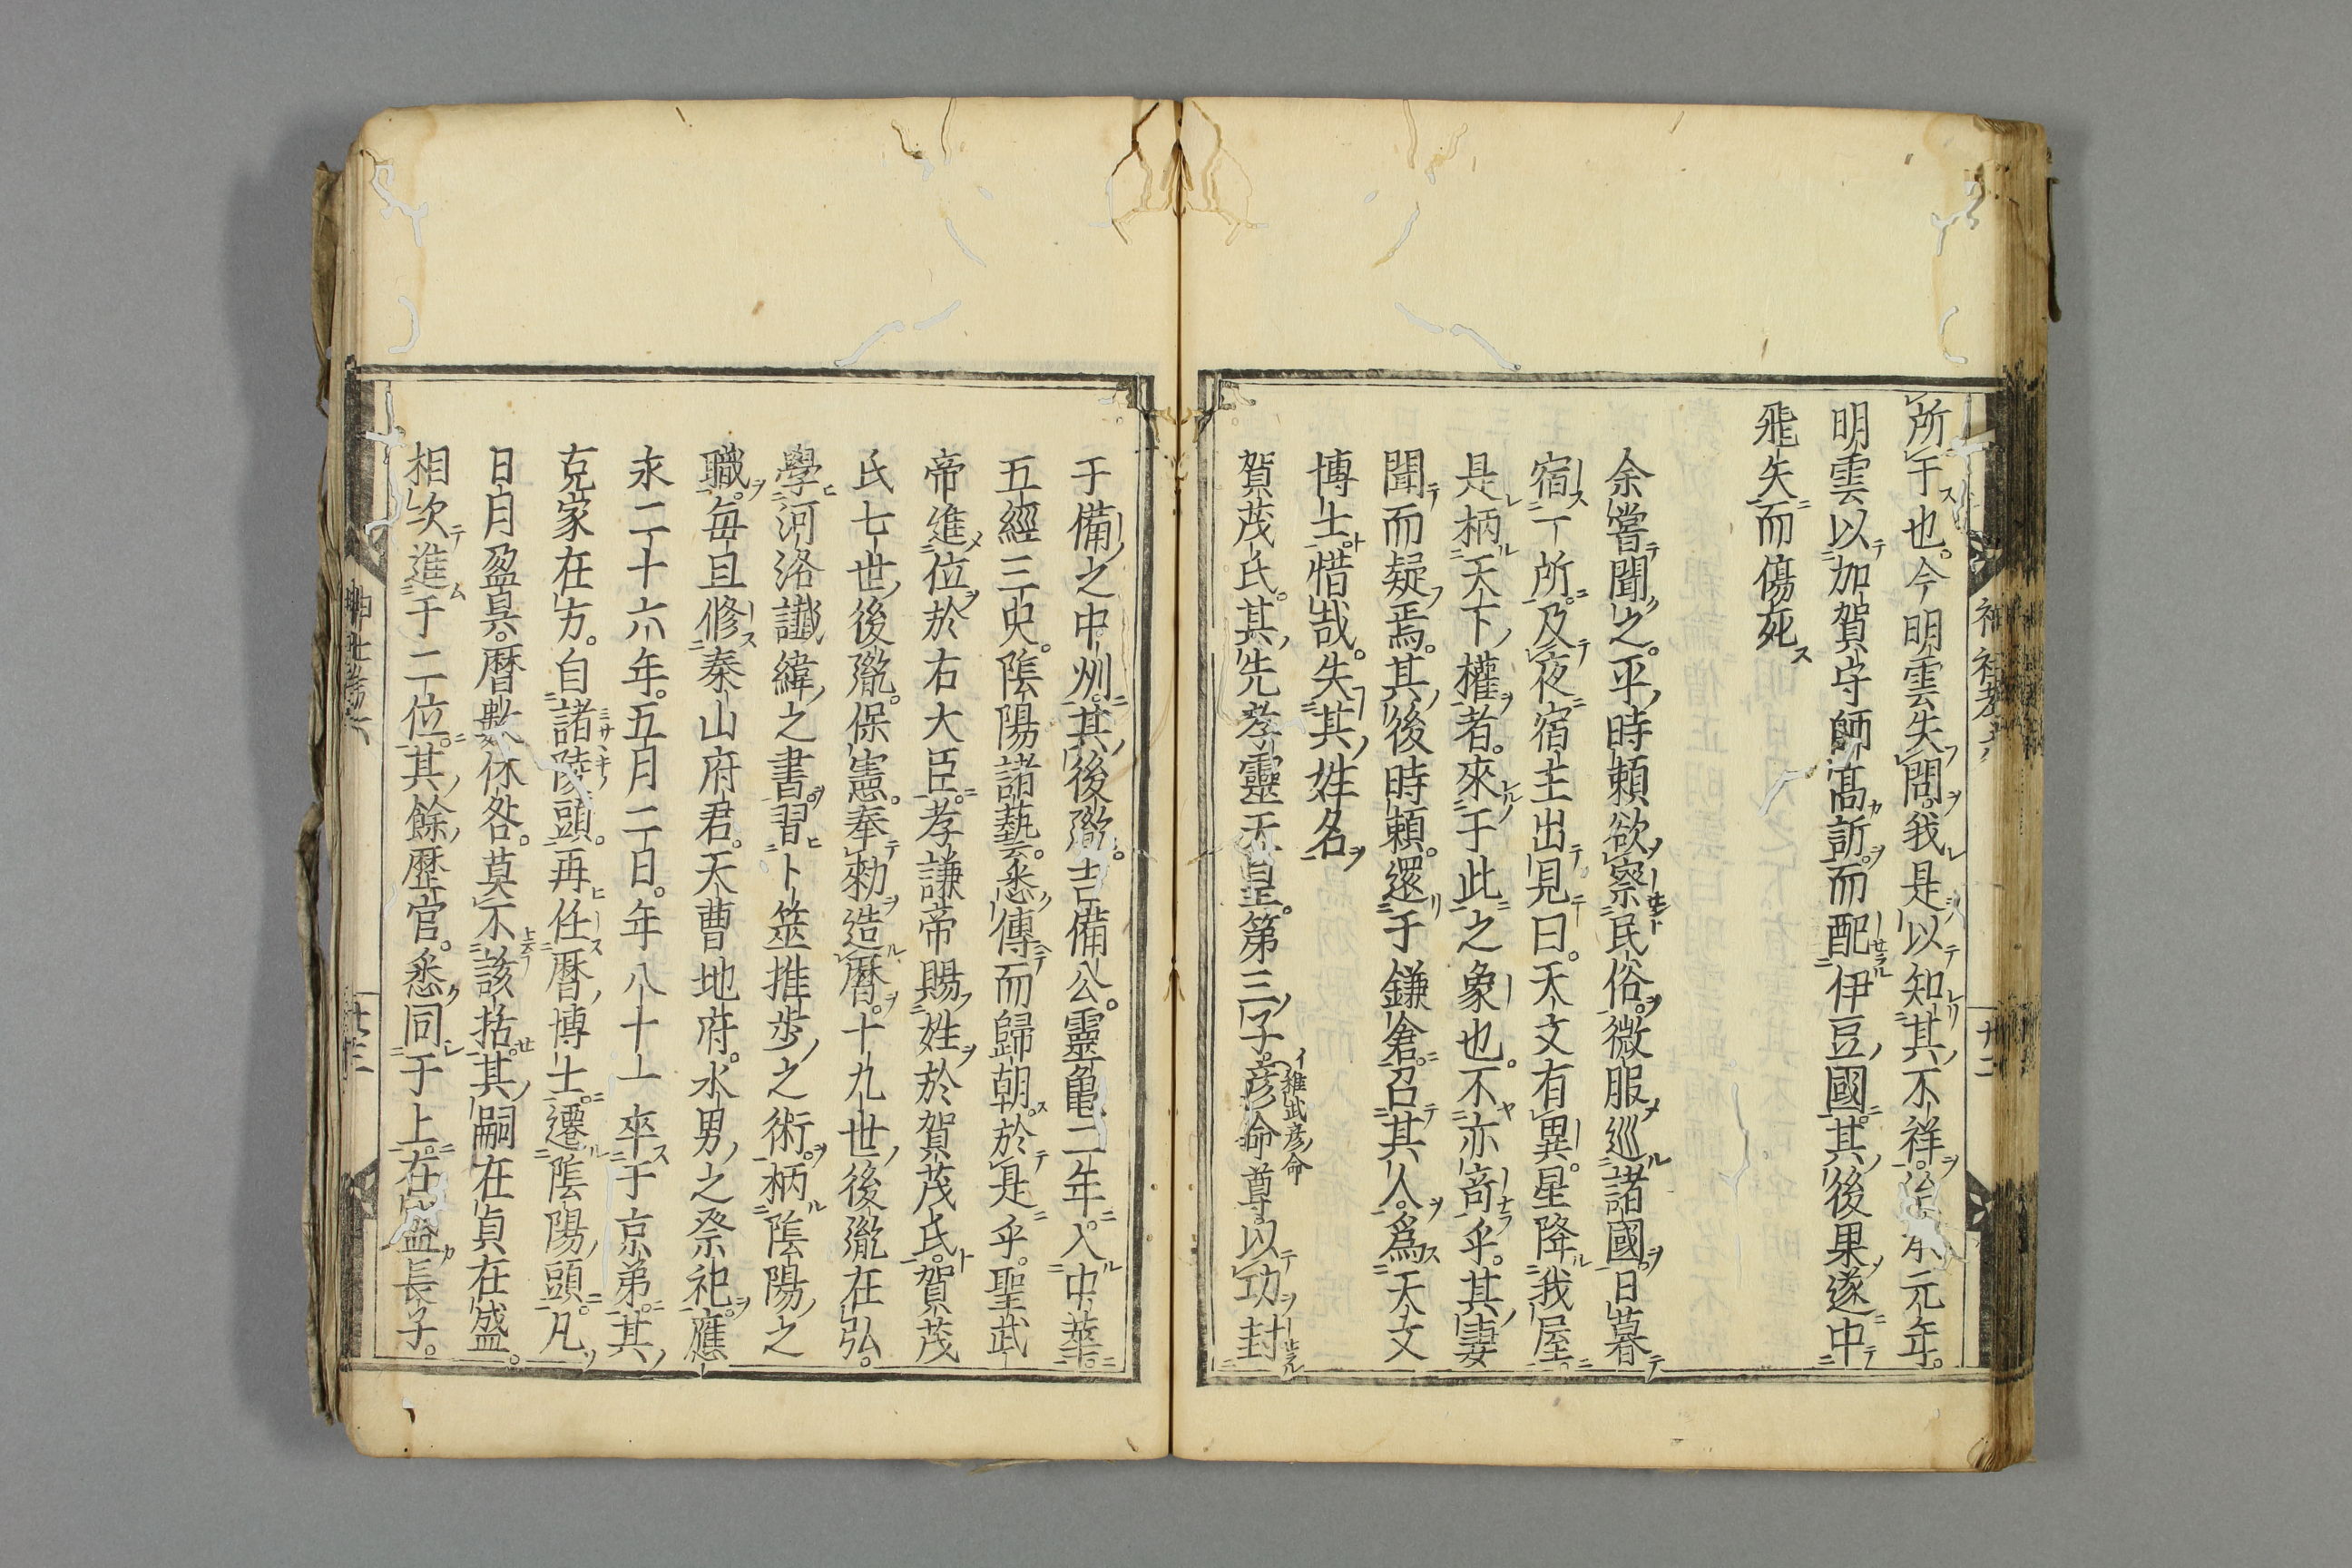 所于也。今明雲失問。我是以知其不祥。元年。
明雲以加賀守師高訴。而配伊豆國。其後果遂中
飛矢而傷死
余嘗聞之。平時頼欲察民俗。微服巡諸國。日暮
宿一所。及夜宿主出見曰。天文有異。星降我屋。
是柄天下權者。來于此之象也。不亦奇乎。其妻
聞而疑焉。其後時頼。還于鎌倉。召其人。爲天文
博士。惜哉。失其姓名
賀茂氏。其先孝靈天皇。第三子。彦命尊。以功封
イ稚武彦命
于備之中州。其後胤。吉備公。靈龜二年。入中華。
五經三史。陰陽諸藝。悉傳而歸朝。於是乎。聖武
帝進位於右大臣。孝謙帝賜姓於賀茂氏。賀茂
氏七世後胤。保憲。奉勅造曆。十九世後胤在弘。
學河洛讖緯之書。習卜筮推歩之術。柄陰陽之
職。毎旦修泰山府君。天曹地府。水男之祭祀。應
永二十六年。五月二日。年八十一卒于京第。其
克家在方。自諸陵頭。再任曆博士。遷陰陽頭。凡
日月盈昃。曆數休咎。莫不該括。其嗣在貞在盛。
相次進于二位。其餘歷官。悉同于上。在盛長子。
神社考六
廿二
神社考六
廿三